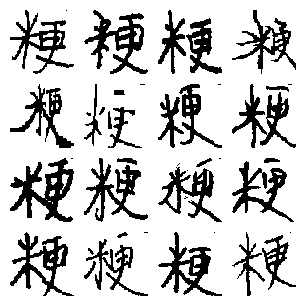 粳粳粳粳
粳粳粳粳
粳粳粳粳
粳粳粳粳